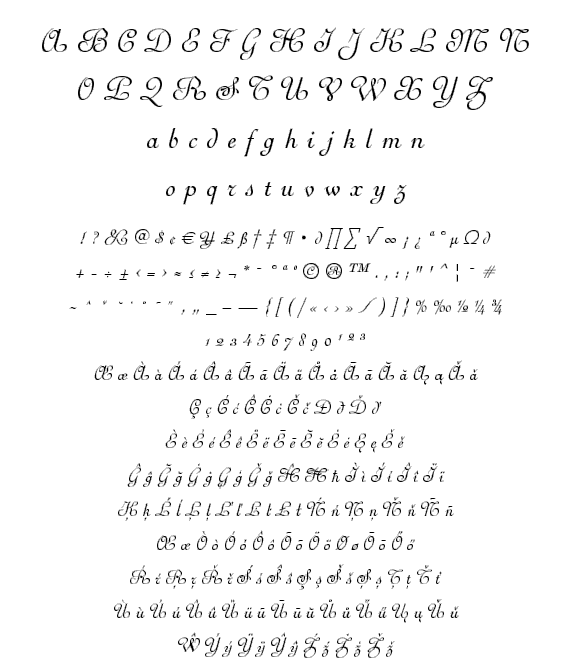 A B C D E F G H I J K L M N
O P Q R S T U V W X Y Z
a b c d e f g h i j k l m n
o p q r s t u v w x y z
! ? & @ $ ¢ € ¥ £ ß † ‡ ¶ • ∂ ∏ ∑ √ ∞ ¡ ¿ ª º µ Ω ∂
+ - ÷ ± ‹ = › ≈ ≤ ≠ ≥ ¬ * - © ® ™ . , : ; " ' ^ ¦ - #
~ , „ _ – — { [ ( / « ‹ › » / ) ] } % ‰ ½ ¼ ¾
1 2 3 4 5 6 7 8 9 0 ¹ ² ³
Æ æ À à Á á Â â Ã ã Ä ä Å å Ā ā Ă ă Ą ą
Ç ç Ć ć Ĉ Ċ ċ Č č Đ ð Ď ď
È è É é Ê ê Ë ë Ē ē Ĕ ĕ Ė ė Ę ę Ě ě
Ĝ ĝ Ğ ğ Ġ ġ Ģ ģ Ĥ Ħ ħ Ì ì Í í Î î Ï ï
Ķ ķ Ĺ ĺ Ļ ļ Ľ ľ Ł ł Ń ń Ņ ņ Ň ň Ñ ñ
Œ œ Ò ò Ó ó Ô ô Õ õ Ö ö Ø ø Ō ō Ő ő
Ŕ ŕ Ŗ ŗ Ř ř Ś ś Ŝ ŝ Ş ş Š š Ț ț Ť ť
Ù ù Ú ú Û û Ü ü Ū ū Ŭ ŭ Ů ů Ű ű Ų ų
Ŵ Ý ý Ÿ ÿ Ŷ ŷ Ź ź Ż ż Ž ž